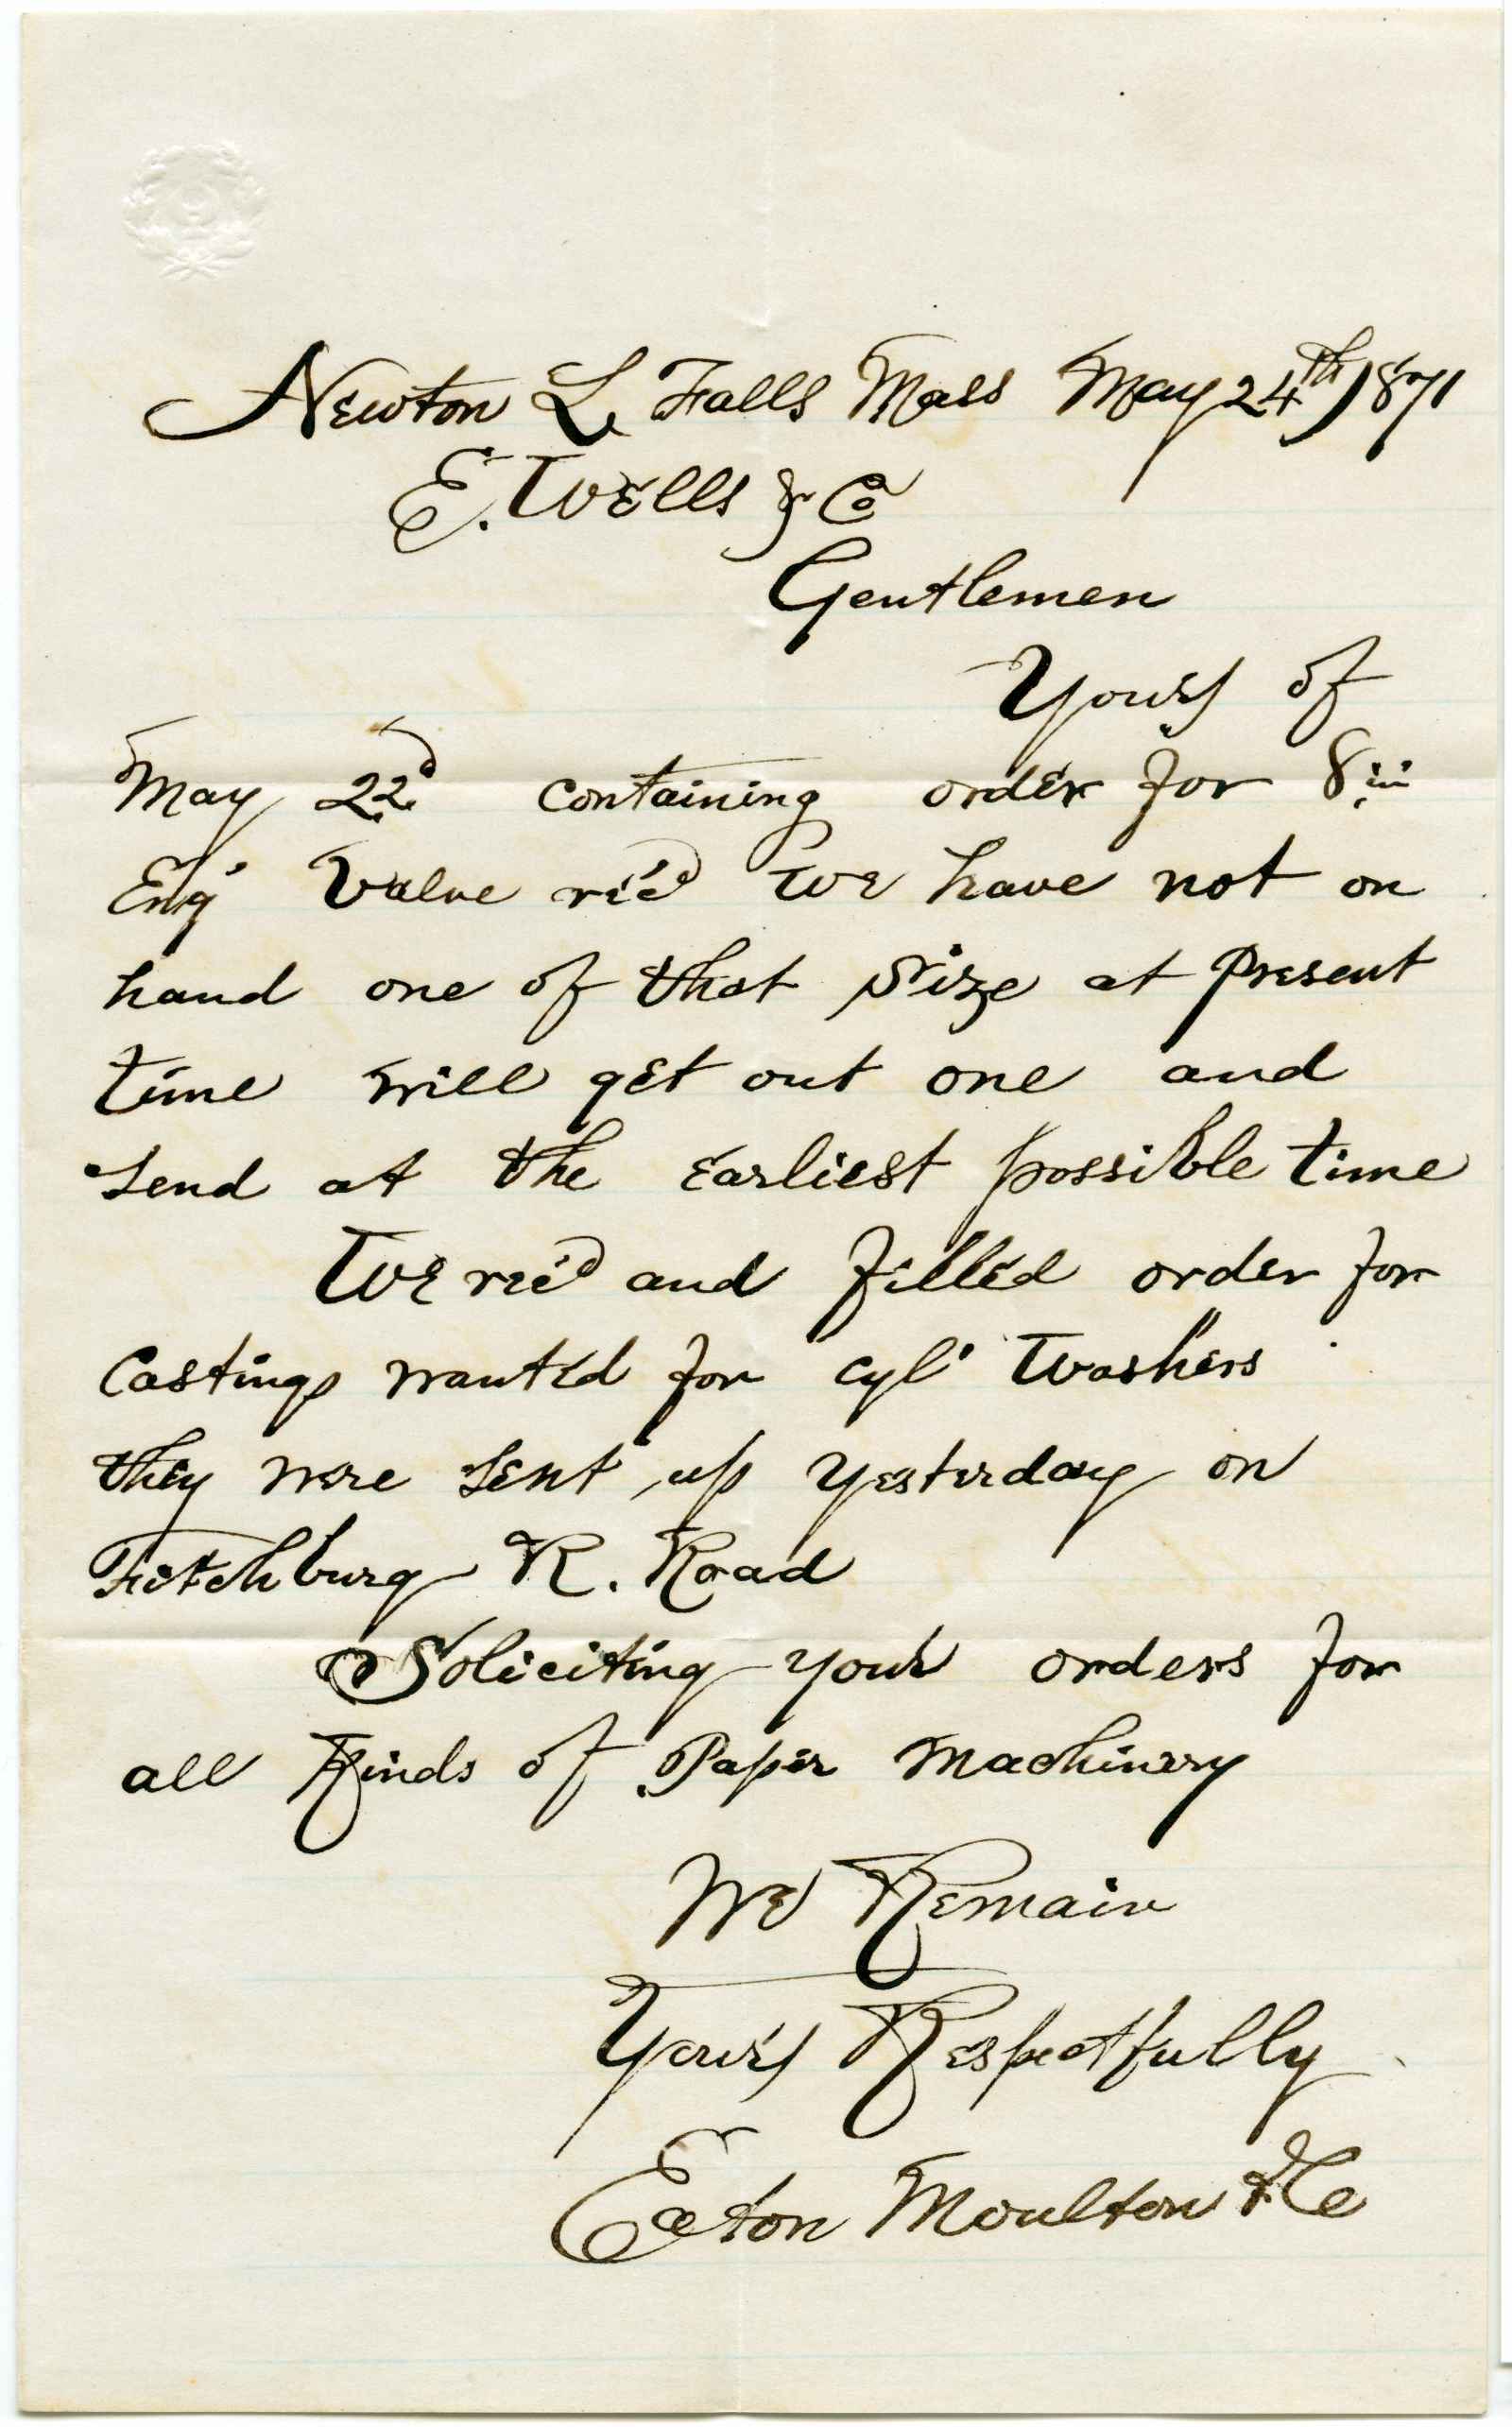 Newton L. Falls Mass May 24th 1871
E. Wells & Co
Gentlemen
Yours of
May 22d containing order for 8 in
Eng' Valve rec'd We have not on
hand one of that size at Present
time will get out one and
send at the earliest possible time
We rec'd and filled order for
Castings wanted for cyl' Washers
they were sent up yesterday on
Fitchburg R. Road
Soliciting your orders for
all Kinds of Paper Machinery
We Remain
Yours Respectfully
Eaton Moulton & Co